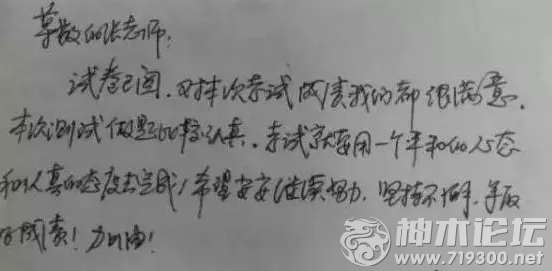 尊敬的张老师:
试卷已阅。对本次考试成绩我们都很满意。
本次测试做题比较认真。考试就要用一个平和的心态
和认真的态度去完成!希望安安继续努力,坚持不懈,争取
好成绩!加油!
神木论坛
www.719300.net